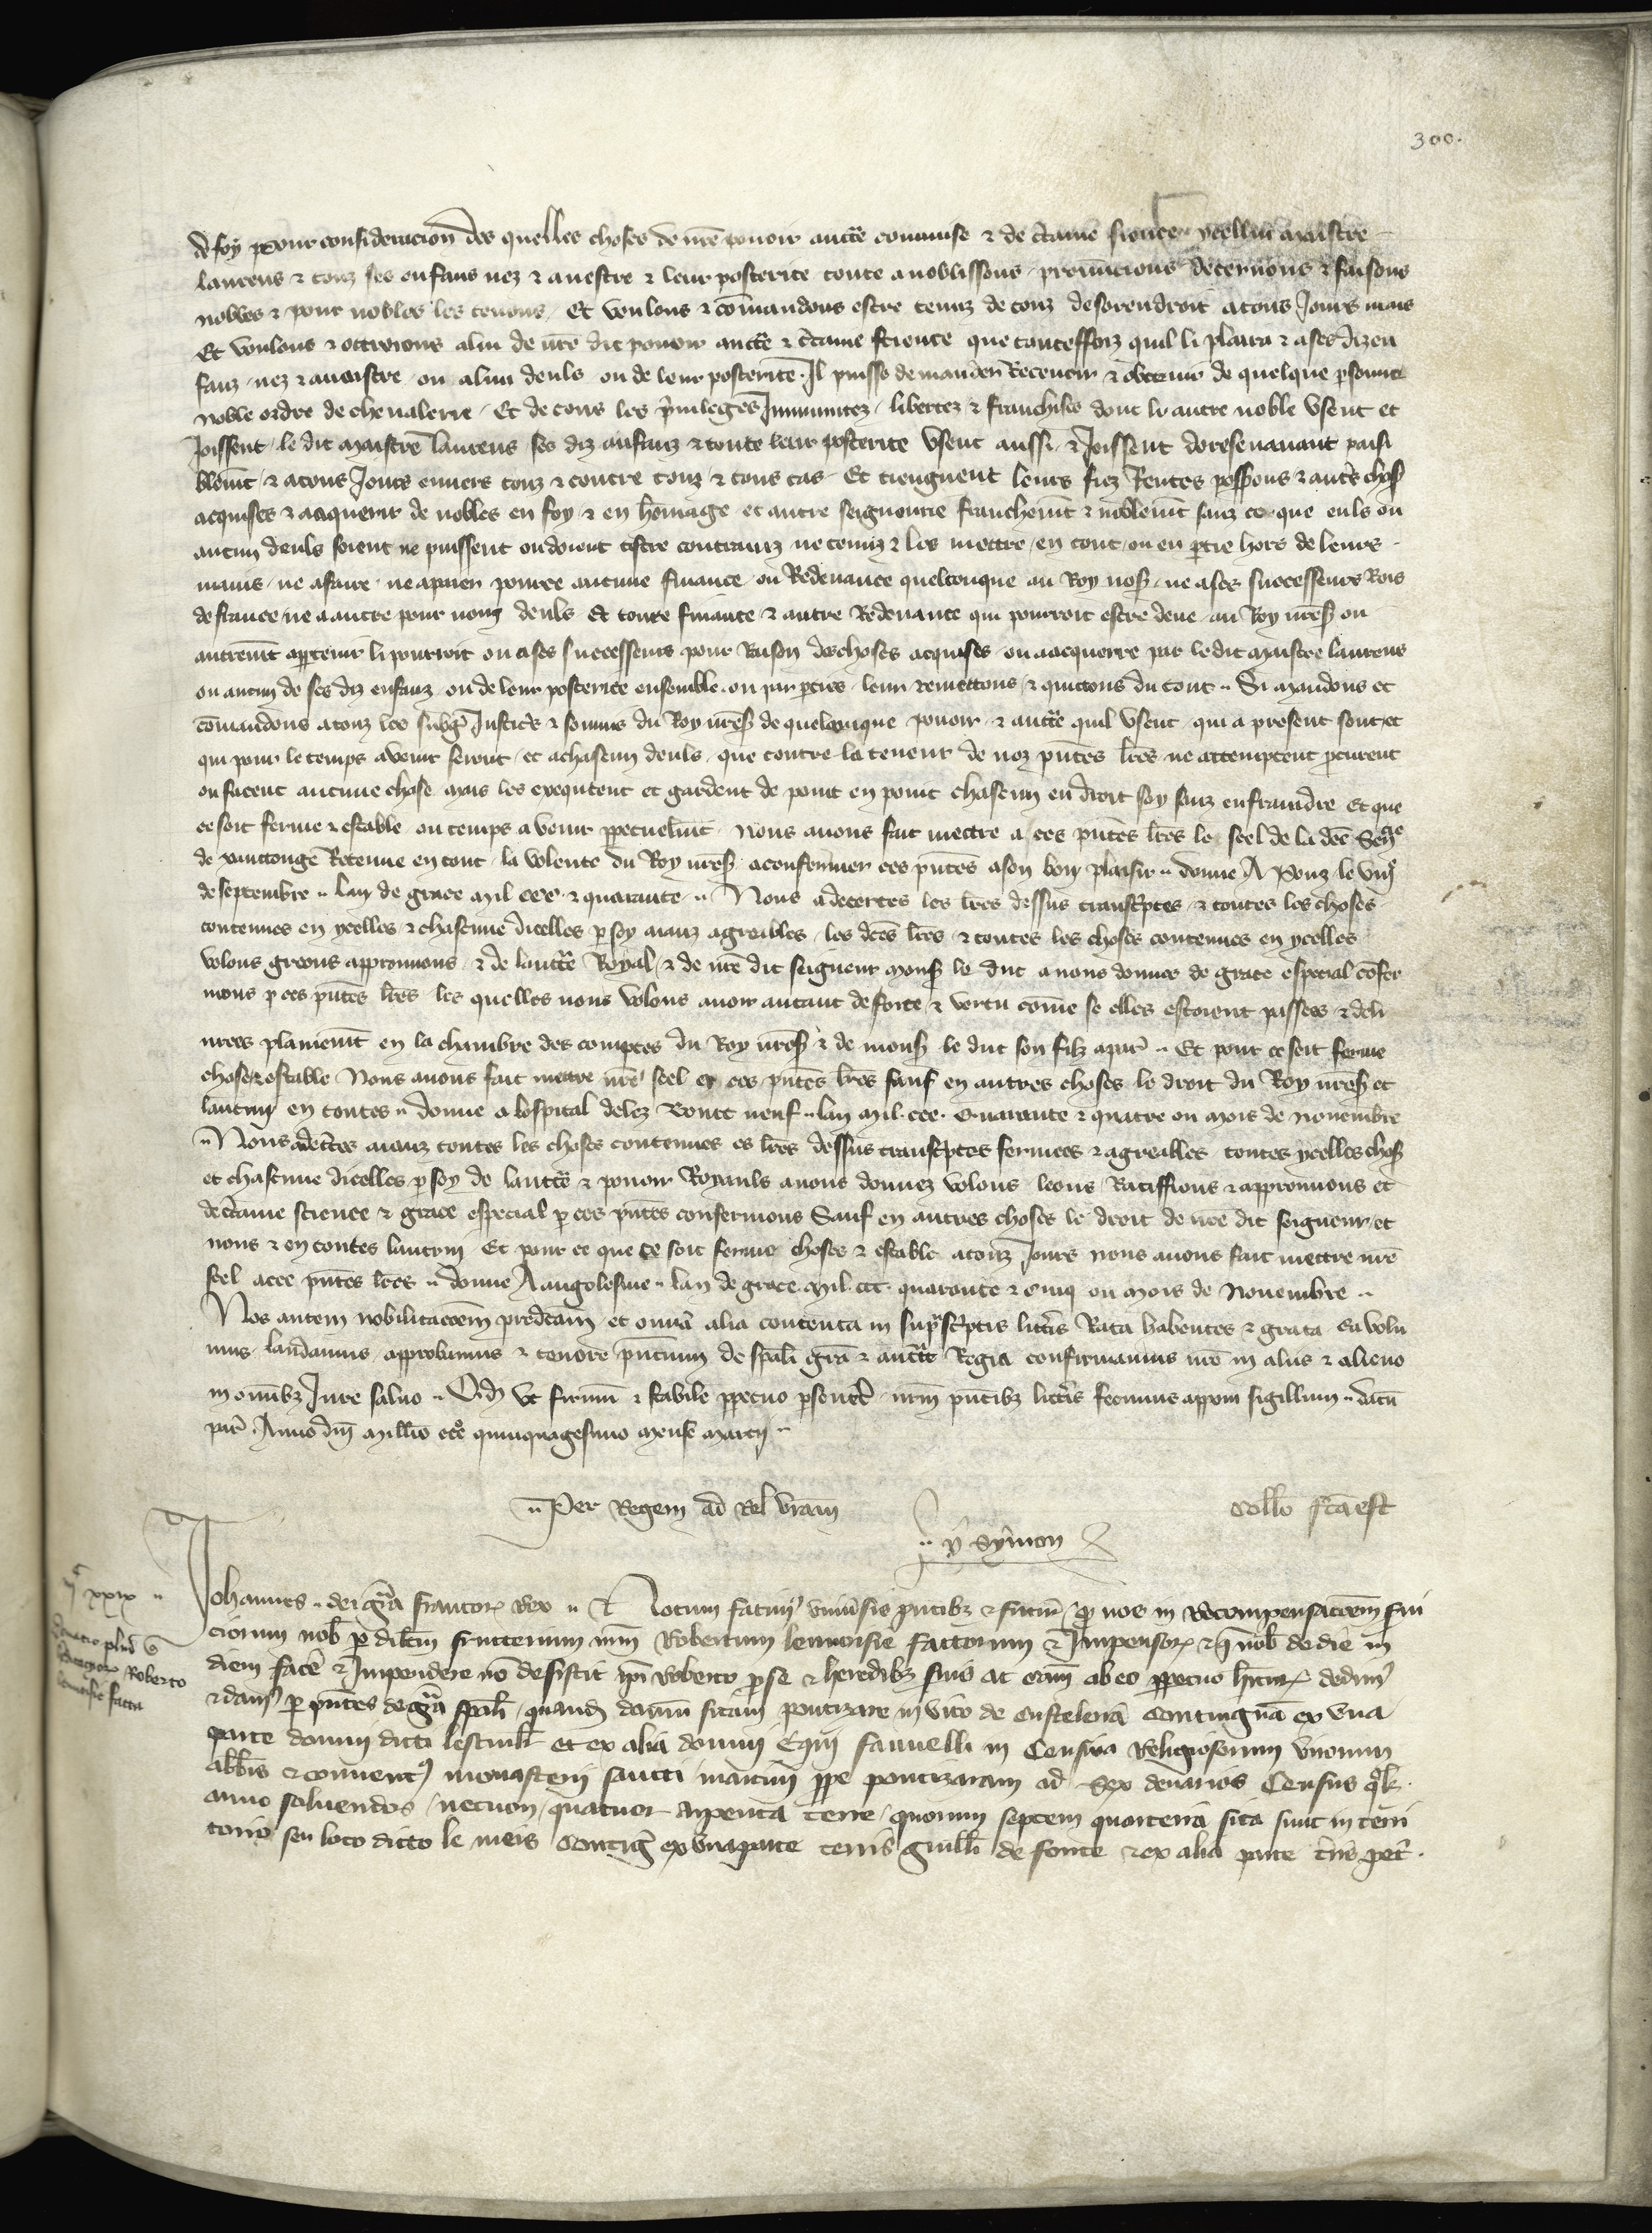 300.
de foy pour consideracion des quelles choses de nre pouoir aucte commise & de ctaine science ycellui maistre
laurens & touz ses enfans nez & a nestre & leur posterite toute anoblissons prenuncions decernons & faisons
nobles & pour nobles les tenons Et voulons & comandons estre tenuz de touz desorendroit a tous Jours mais
Et voulons & ottroions a lui de nre dit pouoir aucte & ctaine science que touteffoiz quil li plaira & a ses diz en
fanz nez & a naistre ou a lun deuls ou de leur posterite Il puisse demander Receuoir & obtenir de quelque psonne
noble ordre de cheualerie Et de tous les priuileges Immunitez libertez & franchises dont li autre noble Usent et
Joissent le dit maistre laurens ses diz anfanz & toute leur posterite Usent aussi & Joissent doresenauant paisi
blemt & a tous Jours enuers touz & contre touz & tous cas Et tiengnent leurs fiez Rentes possons & autrs chos
acquises & a acquerir de nobles en foy & en homage et autre seignourie franchemt & noblemt sanz ce que euls ou
aucun deuls soient ne puissent ou doient estre contrainz ne tenuz & les mettre en tout ou en ptie hors de leurs
mains ne a faire ne a paier pource aucune finance ou Redeuance quelconque au Roy nos ne a ses successeurs Rois
de france ne a autre pour nom deuls Et toute finance & autre Redeuance qui pourroit estre deue au Roy nres ou
autremt apptenir li pourroit ou a ses successeurs pour Raison des choses acquises ou a acquerre par le dit maistre laurens
ou aucun de ses diz enfanz ou de leur posterite ensemble ou par pties leur remettons & quittons du tout Si mandons et
comandons a touz les subgiz Justicrs & du Roy nres de quelconque pouoir & aucte quil Usent qui a present sont et
qui pour le temps a venir seront et a chascun deuls que contre la teneur de noz pntes lres ne attemptent pcurent
ou facent aucune chose mais les exequtent et gardent de point en point chascun en droit soy sanz enfraindre Et que
ce soit ferme & estable ou temps a venir ppetuelmt Nous auons fait mettre a ces pntes lres le seel de la dce Senesc
de xanttonge Retenue en tout la volente du Roy nres a confermer ces pntes a son bon plaisir donne A Pons le
de septembre lan de grace mil ccc & quarante Nous adecertes les lres dessus transcptes & toutes les choses
contenues en ycelles & chascune dicelles p soy aianz agreables les dces lres & toutes les choses contenues en ycelles
volons greons approuuons & de laucte Royal & de nre dit seigneur mons le duc a nous donnee de grace especial confer
mons p ces pntes lres les quelles nous volons auoir autant de force & vertu come se elles estoient passees & deli
urees plainemt en la chambre des comptes du Roy nres & de mons le duc son filz a par Et pour ce soit ferme
chose & estable Nous auons fait mettre nre seel a ces pntes lres sauf en autres choses le droit du Roy nres et
lautrui en toutes donne a lospital delez Pont neuf lan mil ccc quarante & quatre ou mois de nouembre
Nous adectes aianz toutes les choses contenues es lres dessus transcptes fermes & agreables toutes ycelles chos
et chascune dicelles p soy de laucte & pouoir Royauls a nous donnez volons loons Ratiffions & approuuons et
de ctaine science & grace especial p ces pntes confermons Sauf en autres choses le droit de nre dit seigneur et
nous & en toutes lautrui Et pour ce que ce soit ferme chose & estable a touz Jours nous auons fait mettre nre
seel a ces pntes lres donne A angolesme lan de grace mil ccc quarante & cinq ou mois de Nouembre
Nos autem nobilitacoem predcam et omia alia contenta in suprascptis littis Rata habentes & grata ea volu
mus laudamus approbamus & tenore pncium de spali gra & aucte Regia confirmamus nro in aliis & alieno
in omibz Jure saluo Qd ut firmu & stabile ppetuo pseueret nrm pntibz littis fecimus appom sigillum datu
par Anno dni millio ccco quinquagesimo mense marcii
Per Regem ad Rel vram
Collo fca est
P Symon
Johannes dei gra francor Rex &c Notum facim vniuersis pntibz & futur q nos in Recompensacoem serui
ciorum nob p dilcm fructerium nrm Robertum lemoisie factorum & Impensor & q nob de die in
diem face & Impendere no desistit ipi Roberto p se & heredibz suis ac cam ab eo ppetuo hitur dedim
& dam p pntes de gra spali quand domu sitam pontizare in vico de custeleria contiguam ex vna
parte domui dicti lescuik et ex alia domui Equi fauuelli in Censiua Religiosorum virorum
abbis & conuent monasterii sancti martini ppe pontizaram ad sex denarios Census qlt
anno soluendos necnon quatuor arpenta terre quorum septem quarteria sita sunt in terri
torio seu loco dicto le meis contig ex vna parte terris Guilli de fonte & ex alia parte tris pet
iic xxix
Donatio plur
Roberto
lemoisie facta